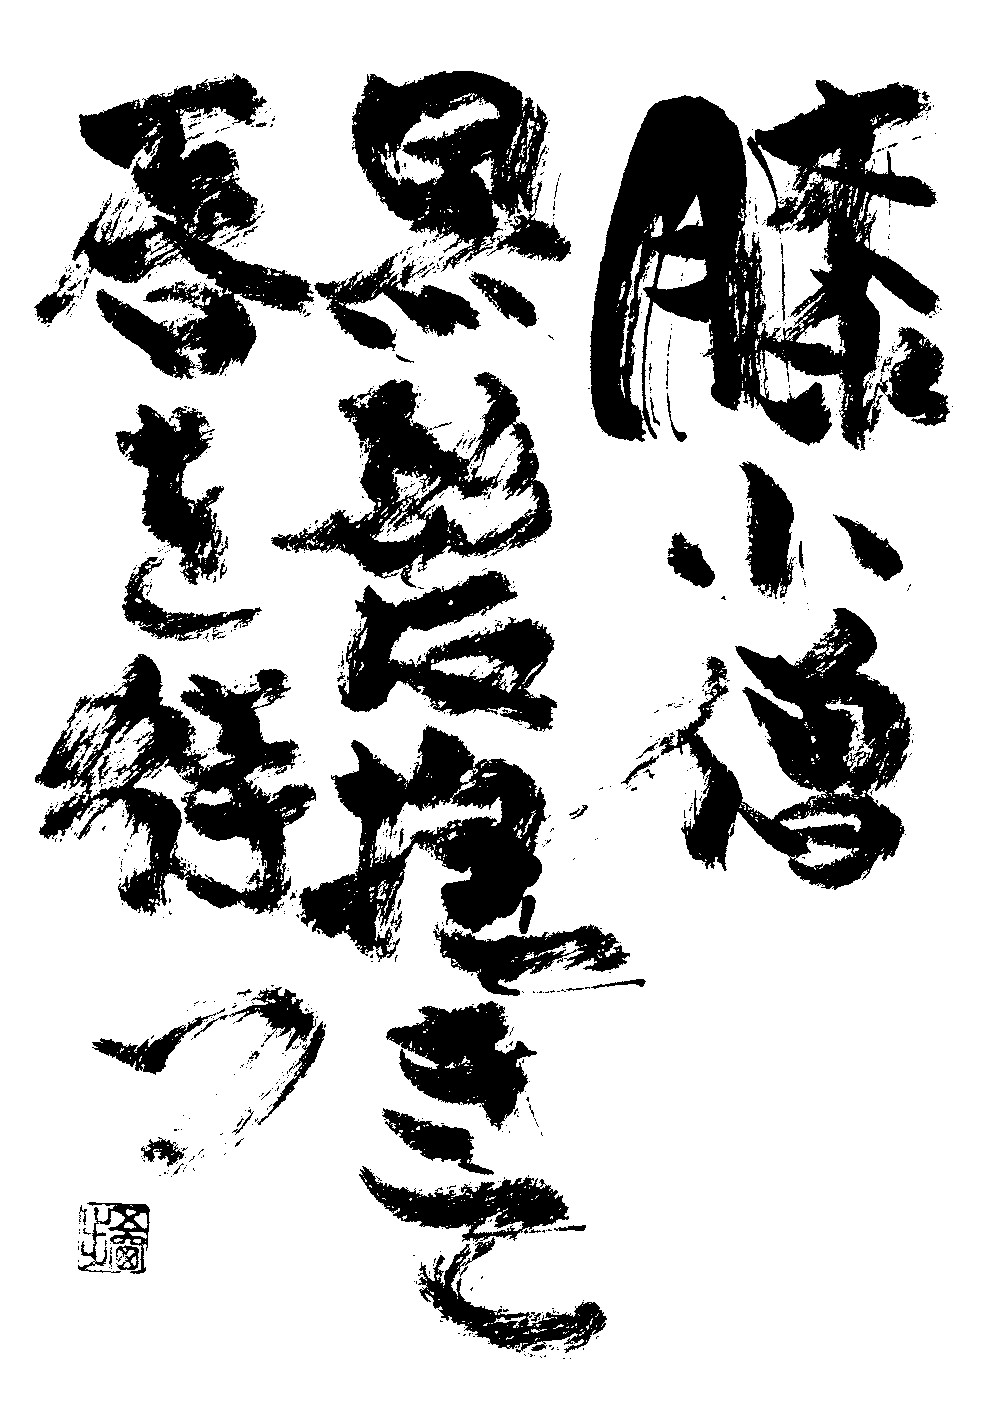 膝小僧
黒髪抱きて
春を待つ